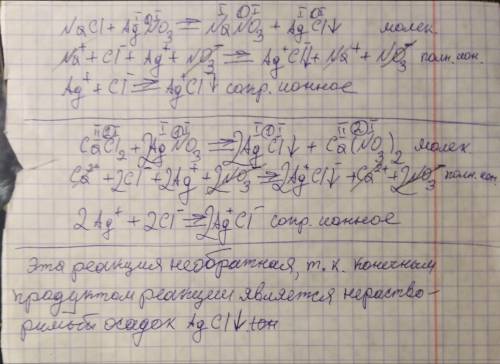 NaCl + AgNO₃ ⇌ NaNO₃ + AgCl↓ молек.
Na⁺ + Cl⁻ + Ag⁺ + NO₃⁻ ⇌ Ag⁺Cl⁻↓ + Na⁺ + NO₃⁻ полн. ион.
Ag⁺ + Cl⁻ ⇌ Ag⁺Cl⁻↓ сокр. ионное
CaCl₂ + 2AgNO₃ ⇌ 2AgCl↓ + Ca(NO₃)₂ молек
Ca²⁺ + 2Cl⁻ + 2Ag⁺ + 2NO₃⁻ ⇌ 2Ag⁺Cl↓ + Ca²⁺ + 2NO₃⁻ полн. ион.
2Ag⁺ + 2Cl⁻ ⇌ 2Ag⁺Cl⁻ сокр. ионное
Эта реакция необратная, т.к. конечным
продуктом реакции является нераство-
римый осадок AgCl↓